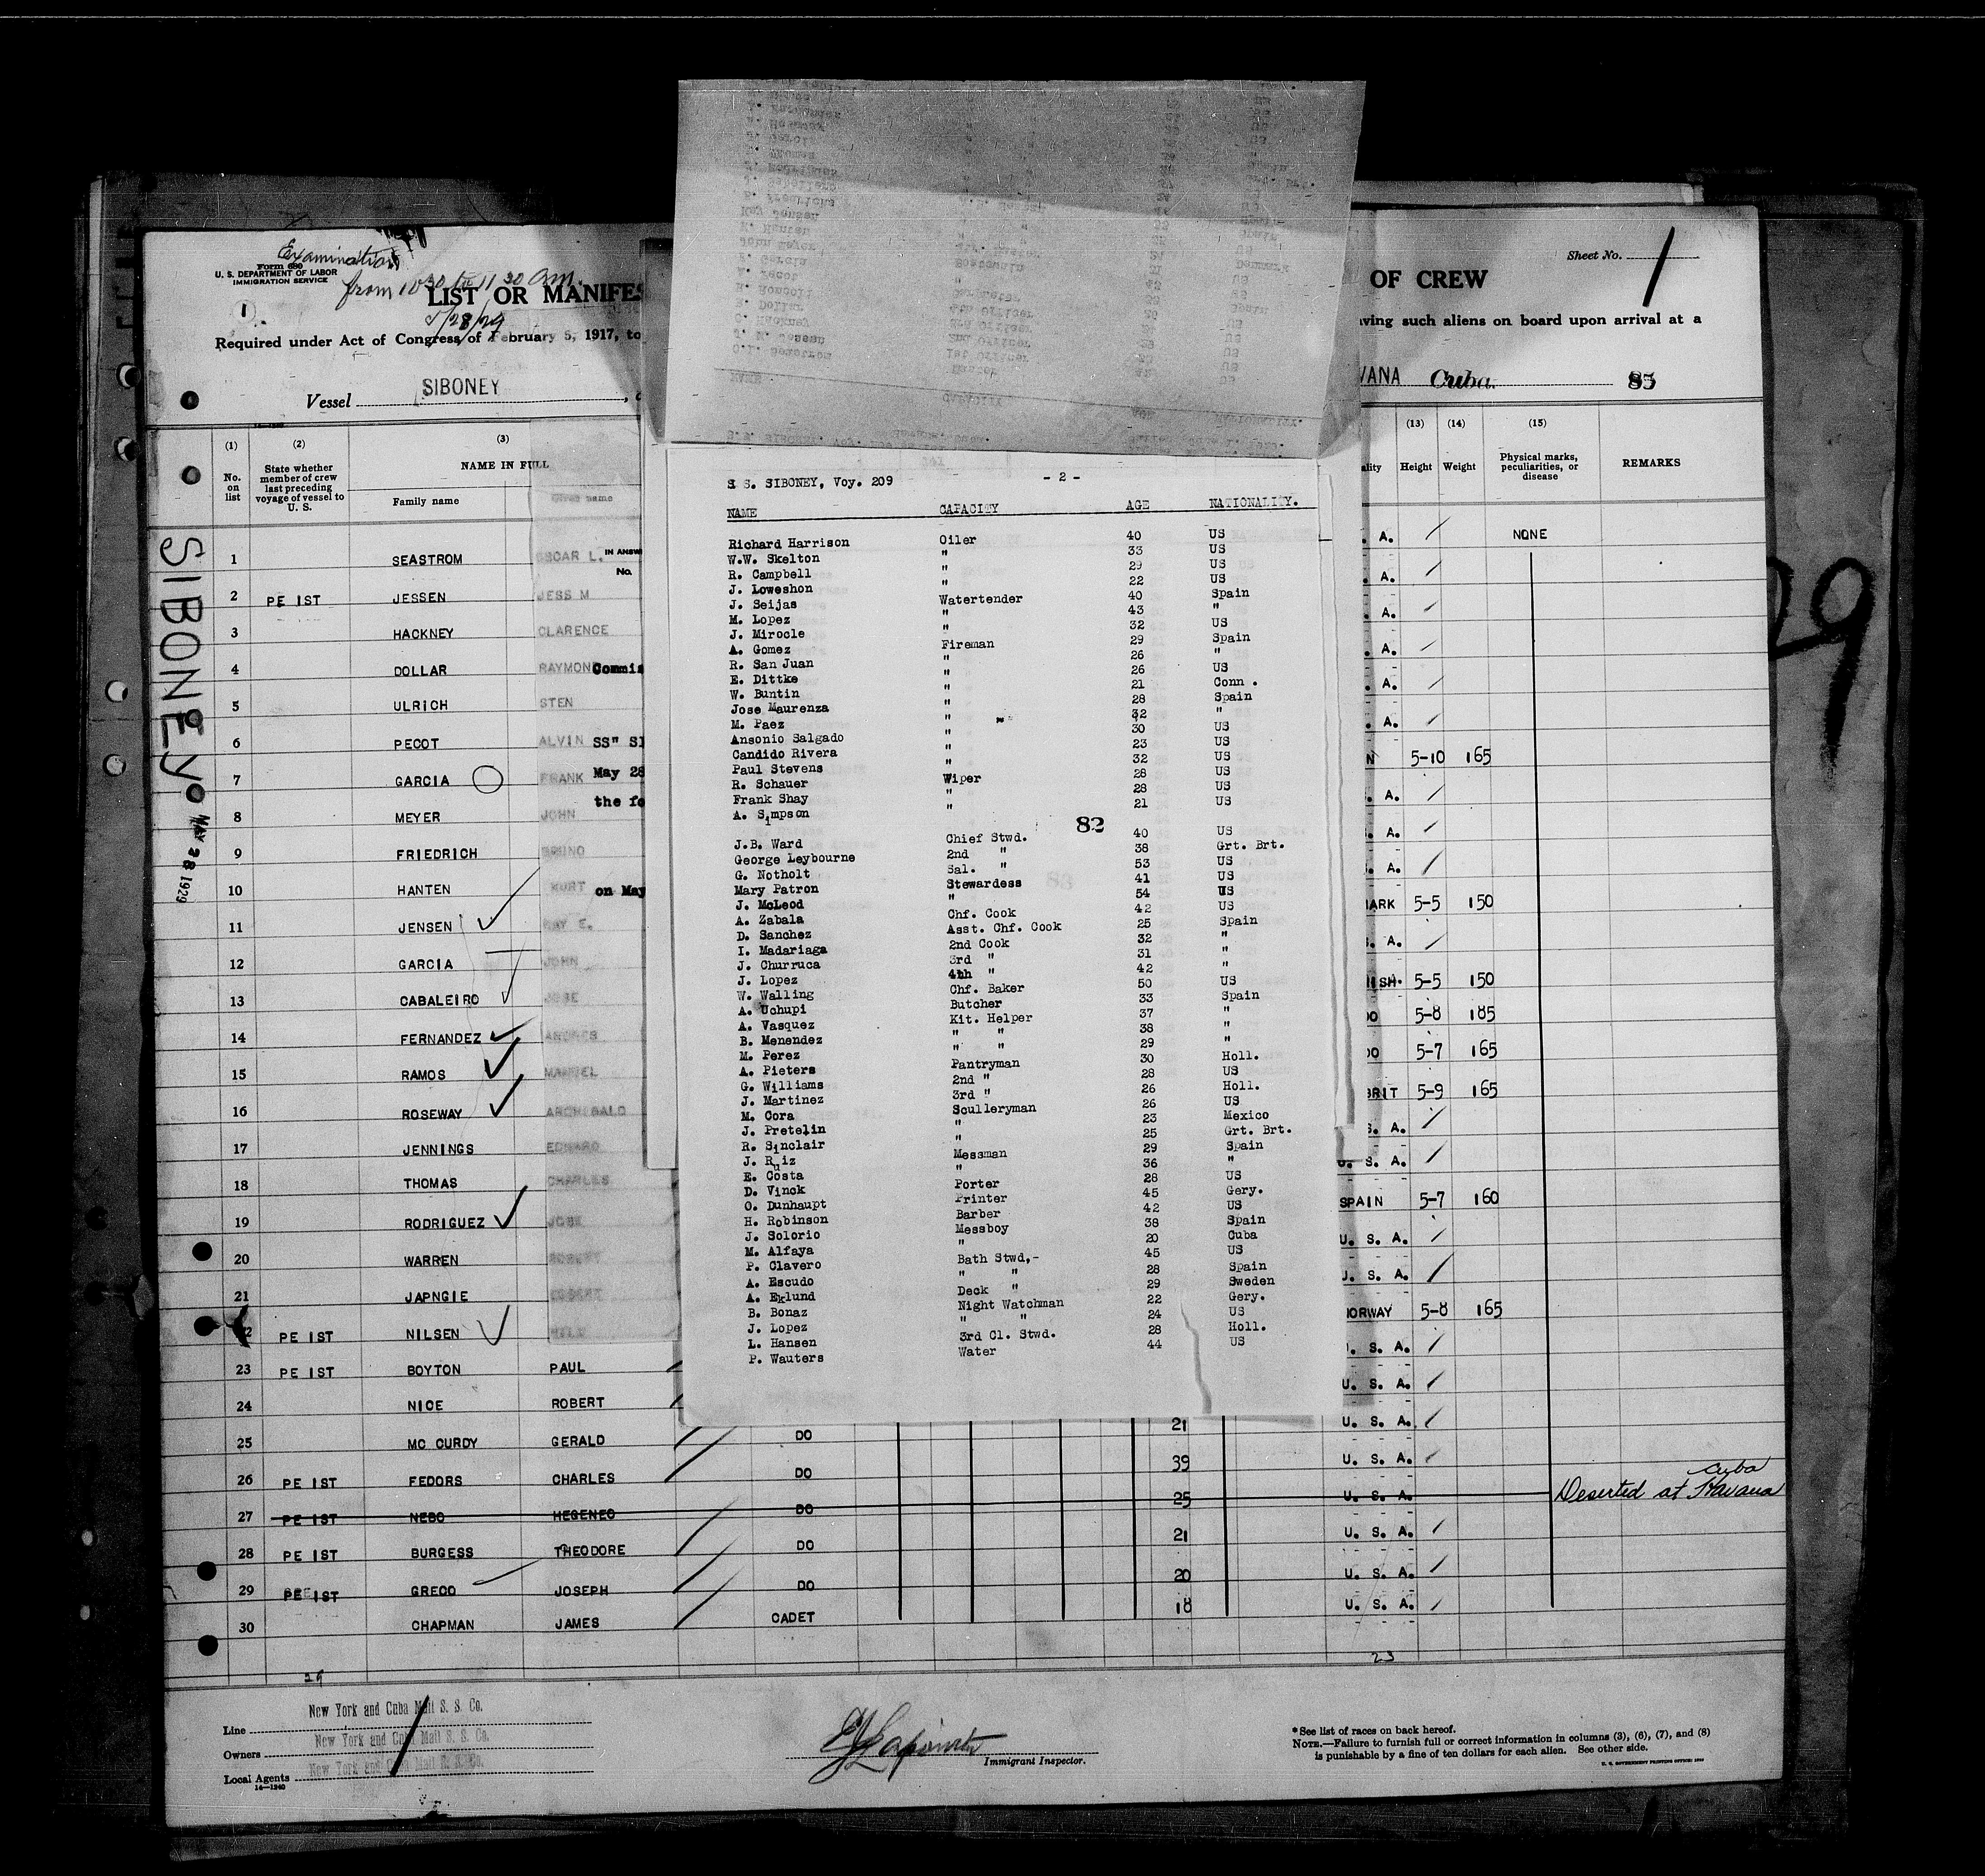 Examination
Form 680
U. S. DEPARTMENT OF LABOR
IMMIGRATION SERVICE
from 10 30 to 11 30 am.
1
LIST OR MANIFES
OF CREW
Sheet No. 1
5/28/29
Required under Act of Congress of February 5, 1917, to
ving such aliens on board upon arrival at a
Vessel SIBONEY
VANA Cuba. 85
(1) (2) (3) (13) (14) (15)
No. on list
State whether member of crew last preceding voyage of vessel to U. S.
NAME IN FULL
Family name Given name
ality Height Weight
Physical marks, peculiarities, or disease
REMARKS
SIBONEY
MAY 28 1929
29
1 SEASTROM OSCAR L. . A. NONE
IN ANSW
No.
2 PE IST JESSEN JESS M . A.
3 HACKNEY CLARENCE . A.
4 DOLLAR RAYMOND . A.
Commis
5 ULRICH STEN . A.
6 PECOT ALVIN . A.
SS" SI
7 GARCIA FRANK N 5-10 165
May 28
the fo
8 MEYER JOHN . A.
9 FRIEDRICH BRUNO . A.
10 HANTEN KURT . A.
on May
11 JENSEN KAY E. MARK 5-5 150
12 GARCIA JOHN . A.
13 CABALEIRO JOSE ISH. 5-5 150
14 FERNANDEZ ANDRES DO 5-8 185
15 RAMOS MANUEL DO 5-7 165
16 ROSEWAY ARCHIBALD BRIT 5-9 165
17 JENNINGS EDWARD S. A.
18 THOMAS CHARLES U. S. A.
19 RODRIGUEZ JOSE SPAIN 5-7 160
20 WARREN ROBERT U. S. A.
21 JAPNGIE U. S. A.
22 PE IST NILSEN NILS NORWAY 5-8 165
23 PE IST BOYTON PAUL U. S. A.
24 NICE ROBERT U. S. A.
25 MC CURDY GERALD DO 21 U. S. A.
26 PE IST FEDORS CHARLES DO 39 U. S. A.
27 PE IST NEBO HEGENEO DO 25 U. S. A. Deserted at Havana Cuba
28 PE IST BURGESS THEODORE DO 21 U. S. A.
29 PE IST GRECO JOSEPH DO 20 U. S. A.
30 CHAPMAN JAMES CADET 18 U. S. A.
29
23
S S. SIBONEY, Voy. 209 - 2 -
NAME CAPACITY AGE NATIONALITY.
Richard Harrison Oiler 40 US
W.W. Skelton " 33 US
R. Campbell " 29 US
J. Loweshon " 22 US
J. Seijas Watertender 40 Spain
M. Lopez " 43 "
J. Mirocle " 32 US
A. Gomez Fireman 29 Spain
R. San Juan " 26 "
E. Dittke " 26 US
W. Buntin " 21 Conn .
Jose Maurenza " 28 Spain
M. Paez " 32 "
Ansonio Salgado " 30 US
Candido Rivera " 23 US
Paul Stevens " 32 US
R. Schauer Wiper 28 US
Frank Shay " 28 US
A. Simpson " 21 US
82
J.B. Ward Chief Stwd. 40 US
George Leybourne 2nd " 38 Grt. Brt.
G. Notholt Sal. " 53 US
Mary Patron Stewardess 41 US
J. McLeod " 54 US
A. Zabala Chf. Cook 42 US
D. Sanchez Asst. Chf. Cook 25 Spain
I. Madariaga 2nd Cook 32 "
J. Churruca 3rd " 31 "
J. Lopez 4th " 42 "
W. Walling Chf. Baker 50 US
A. Uchupi Butcher 33 Spain
A. Vasquez Kit. Helper 37 "
B. Menendez " " 38 "
M. Perez " " 29 "
A. Pieters Pantryman 30 Holl.
G. Williams 2nd " 28 US
J. Martinez 3rd " 26 Holl.
M. Cora Sculleryman 26 US
J. Pretelin " 23 Mexico
R. Sinclair " 25 Grt. Brt.
J. Ruiz Messman 29 Spain
E. Costa " 36 "
D. Vinck Porter 28 US
O. Dunhaupt Printer 45 Gery.
H. Robinson Barber 42 US
J. Solorio Messboy 38 Spain
M. Alfaya " 20 Cuba
P. Clavero Bath Stwd,- 45 US
A. Escudo " " 28 Spain
A. Eklund Deck " 29 Sweden
B. Bonaz Night Watchman 22 Gery.
J. Lopez " " 24 US
L. Hansen 3rd Cl. Stwd. 28 Holl.
P. Wauters Water 44 US
Line New York and Cuba Mail S. S. Co.
Owners New York and Cuba Mail S. S. Co.
Local Agents New York and Cuba Mail S. S. Co.
14—1240
Immigrant Inspector.
*See list of races on back hereof.
NOTE.—Failure to furnish full or correct information in columns (3), (6), (7), and (8)
is punishable by a fine of ten dollars for each alien. See other side.
U. S. GOVERNMENT PRINTING OFFICE: